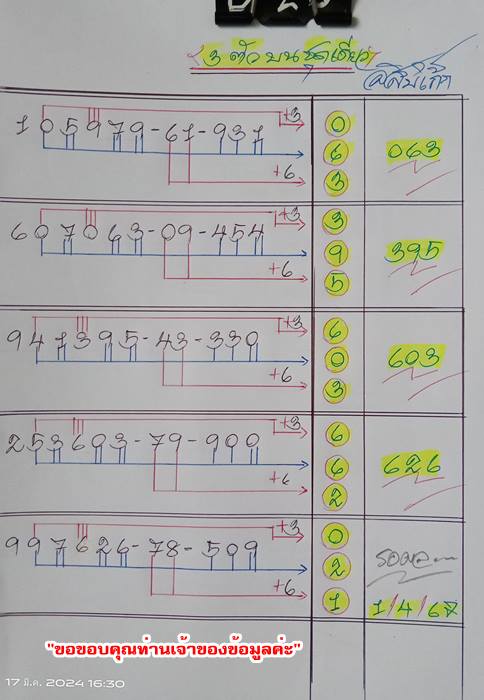 3 ตัวบนชุดเดียว
@สิบเก้า
+3
105979-61-931
+6
0
6
3
063
+3
607063-09-454
+6
3
9
5
395
+3
941395-43-330
+6
6
0
3
603
+3
253603-79-900
+6
6
6
2
626
+3
997626-78-509
+6
0
2
1
รอผล...
1/4/67
"ขอขอบคุณท่านเจ้าของข้อมูลค่ะ"
17 มี.ค. 2024 16:30